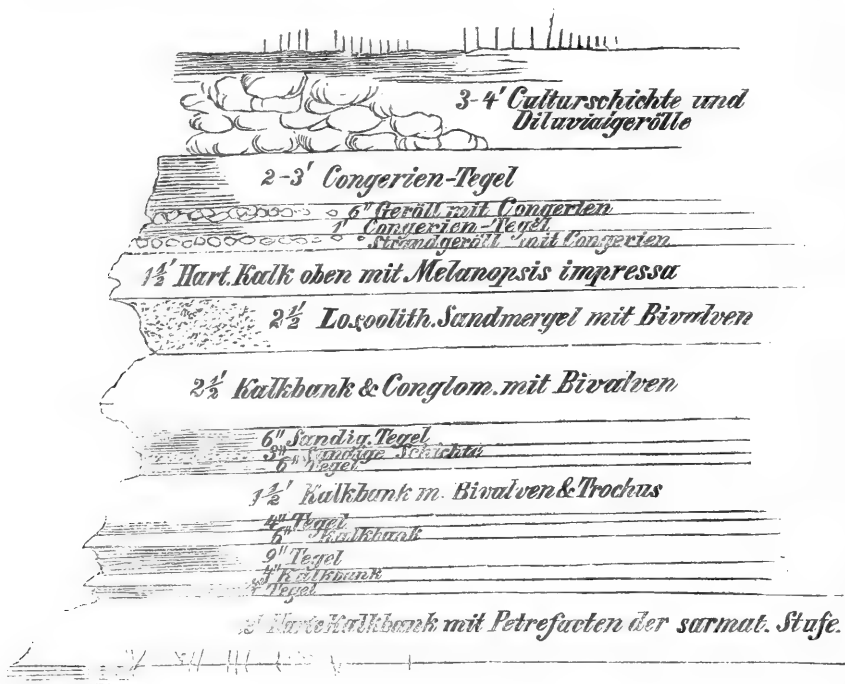 3-4' Culturschichte und
Diluvialgerölle
2-3' Congerien-Tegel
6" Geröll mit Congerien
1' Congerien-Tegel
Strandgeröll mit Congerien
1½' Hart. Kalk oben mit Melanopsis impressa
2½' Loxoolith. Sandmergel mit Bivalven
2½' Kalkbank & Conglom. mit Bivalven
6" Sandig. Tegel
3" Sandige Schichte
6" Tegel
1½' Kalkbank m. Bivalven & Trochus
4" Tegel
6" Kalkbank
9" Tegel
4" Kalkbank
Tegel
Harte Kalkbank mit Petrefacten der sarmat. Stufe.